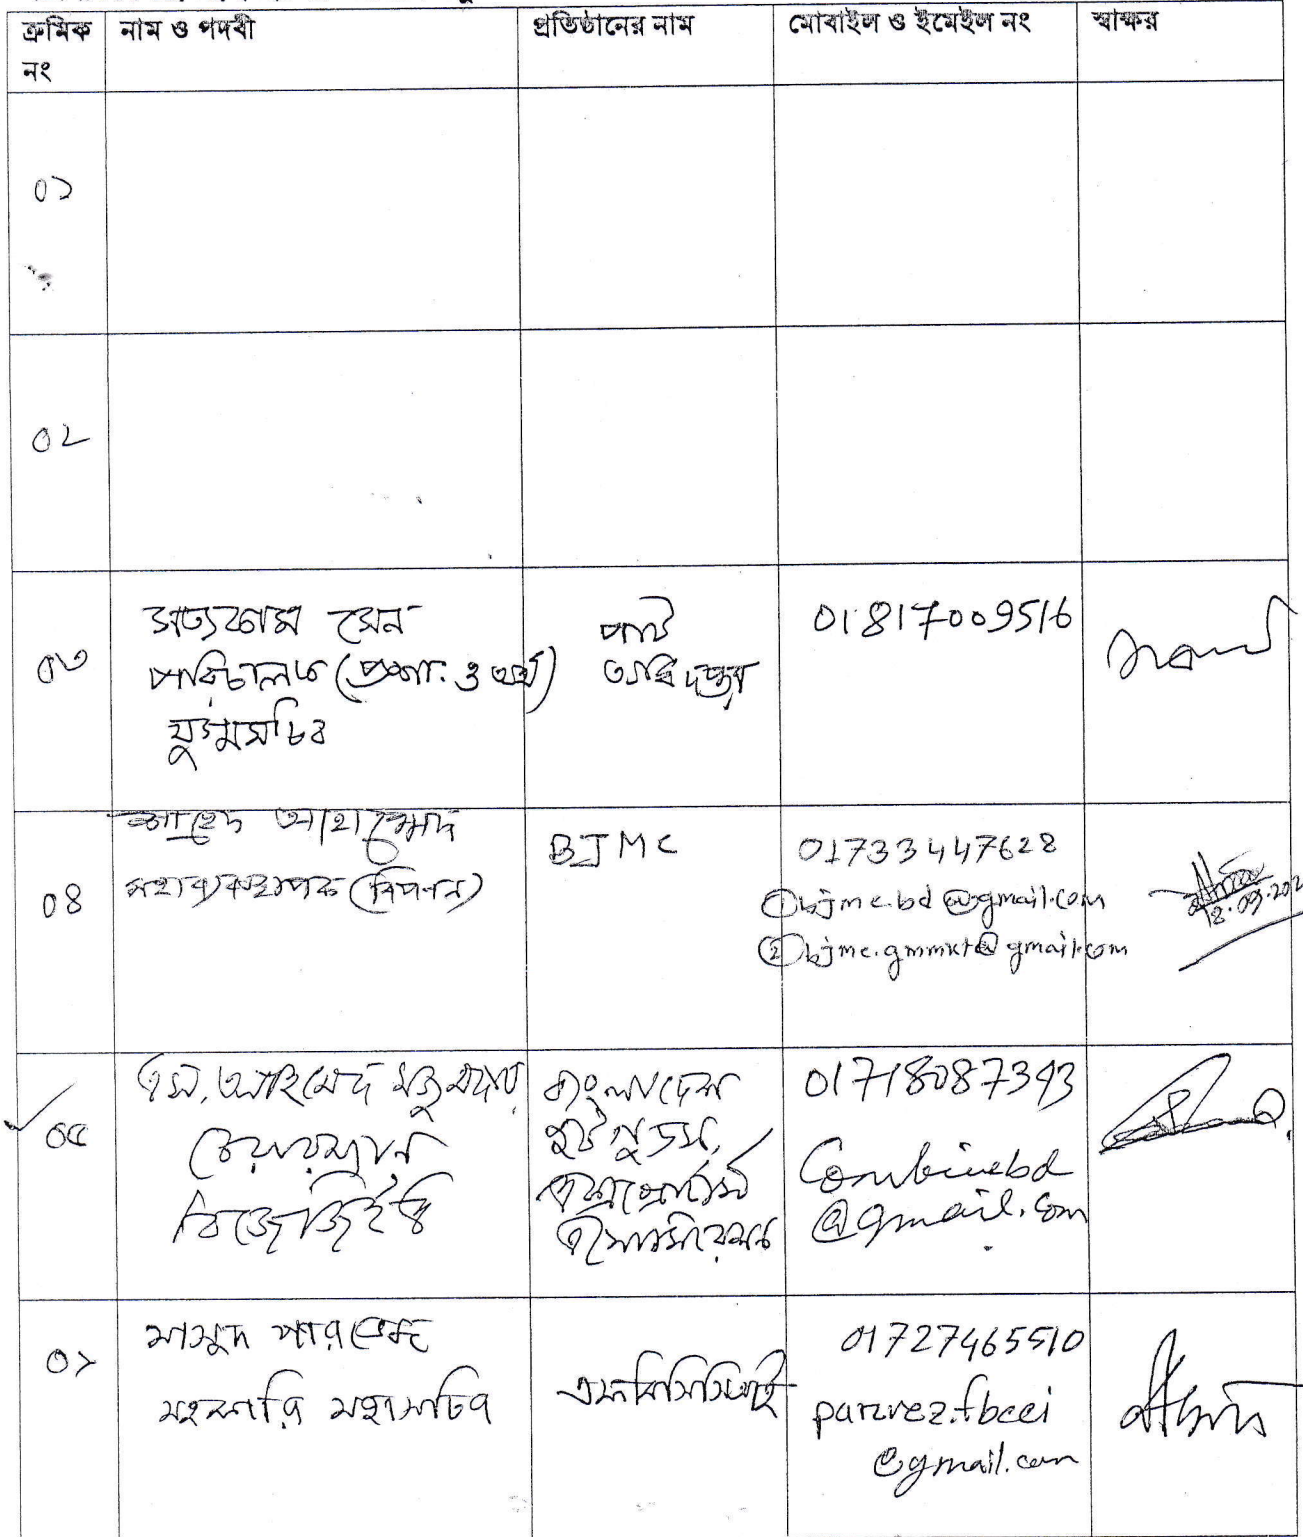 ক্রমিক নং
নাম ও পদবী
প্রতিষ্ঠানের নাম
মোবাইল ও ইমেইল নং
স্বাক্ষর
০১
০২
০৩
সত্যকাম সেন
পরিচালক (প্রশা: ও অর্থ)
যুগ্মসচিব
পাট
অধিদপ্তর
01817009516
০৪
আহাম্মেদ
মহাব্যবস্থাপক (বিপণন)
BJMC
01733447628
① bjmc.bd@gmail.com
② bjmc.gmmkt@gmail.com
০৫
এস, আহমেদ মজুমদার
চেয়ারম্যান
বিজেজিইএ
বাংলাদেশ
জুট গুডস,
এক্সপোর্টার্স
এসোসিয়েশন
01718087393
Combinebd
@gmail.com
মাসুদ পারভেজ
সহকারি মহাসচিব
এফবিসিসিআই
01727465510
parvez.fbcci
@gmail.com